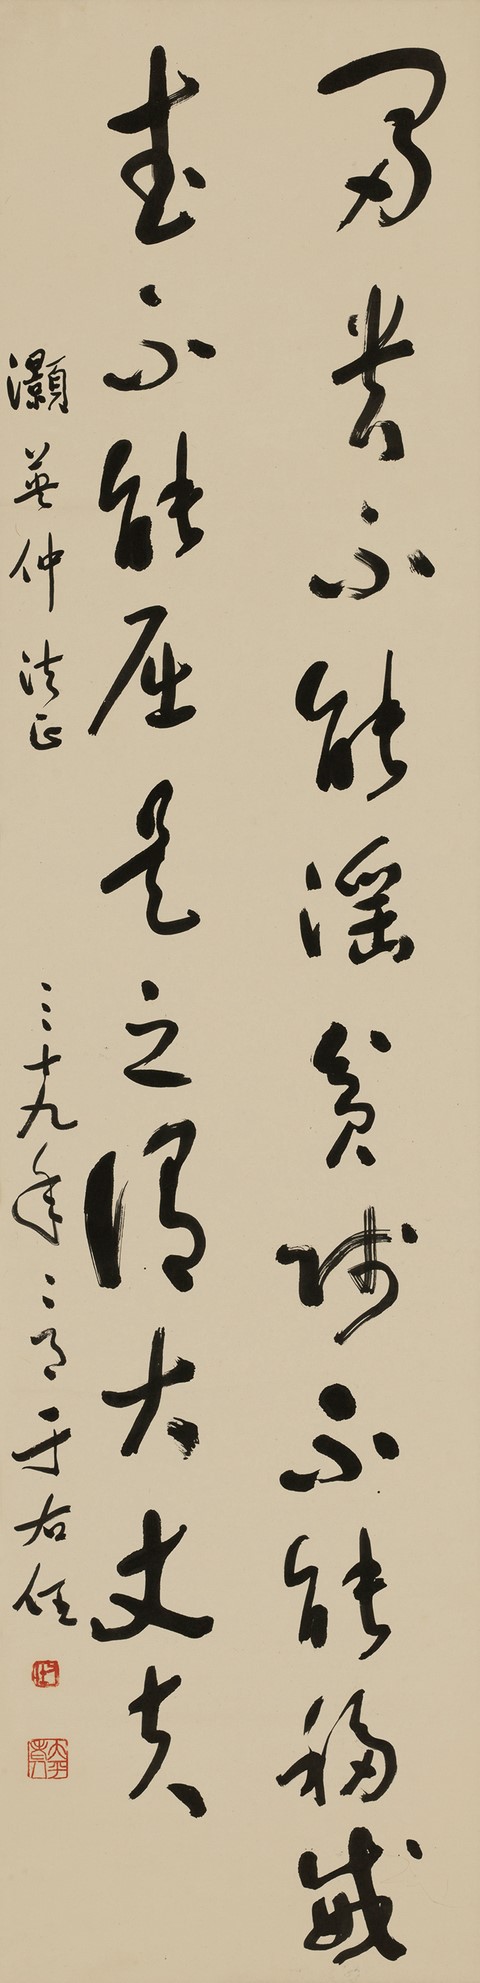 富貴不能淫貧賤不能移威
武不能屈是之謂大丈夫
灝英仲法正
三十九年二月于右任